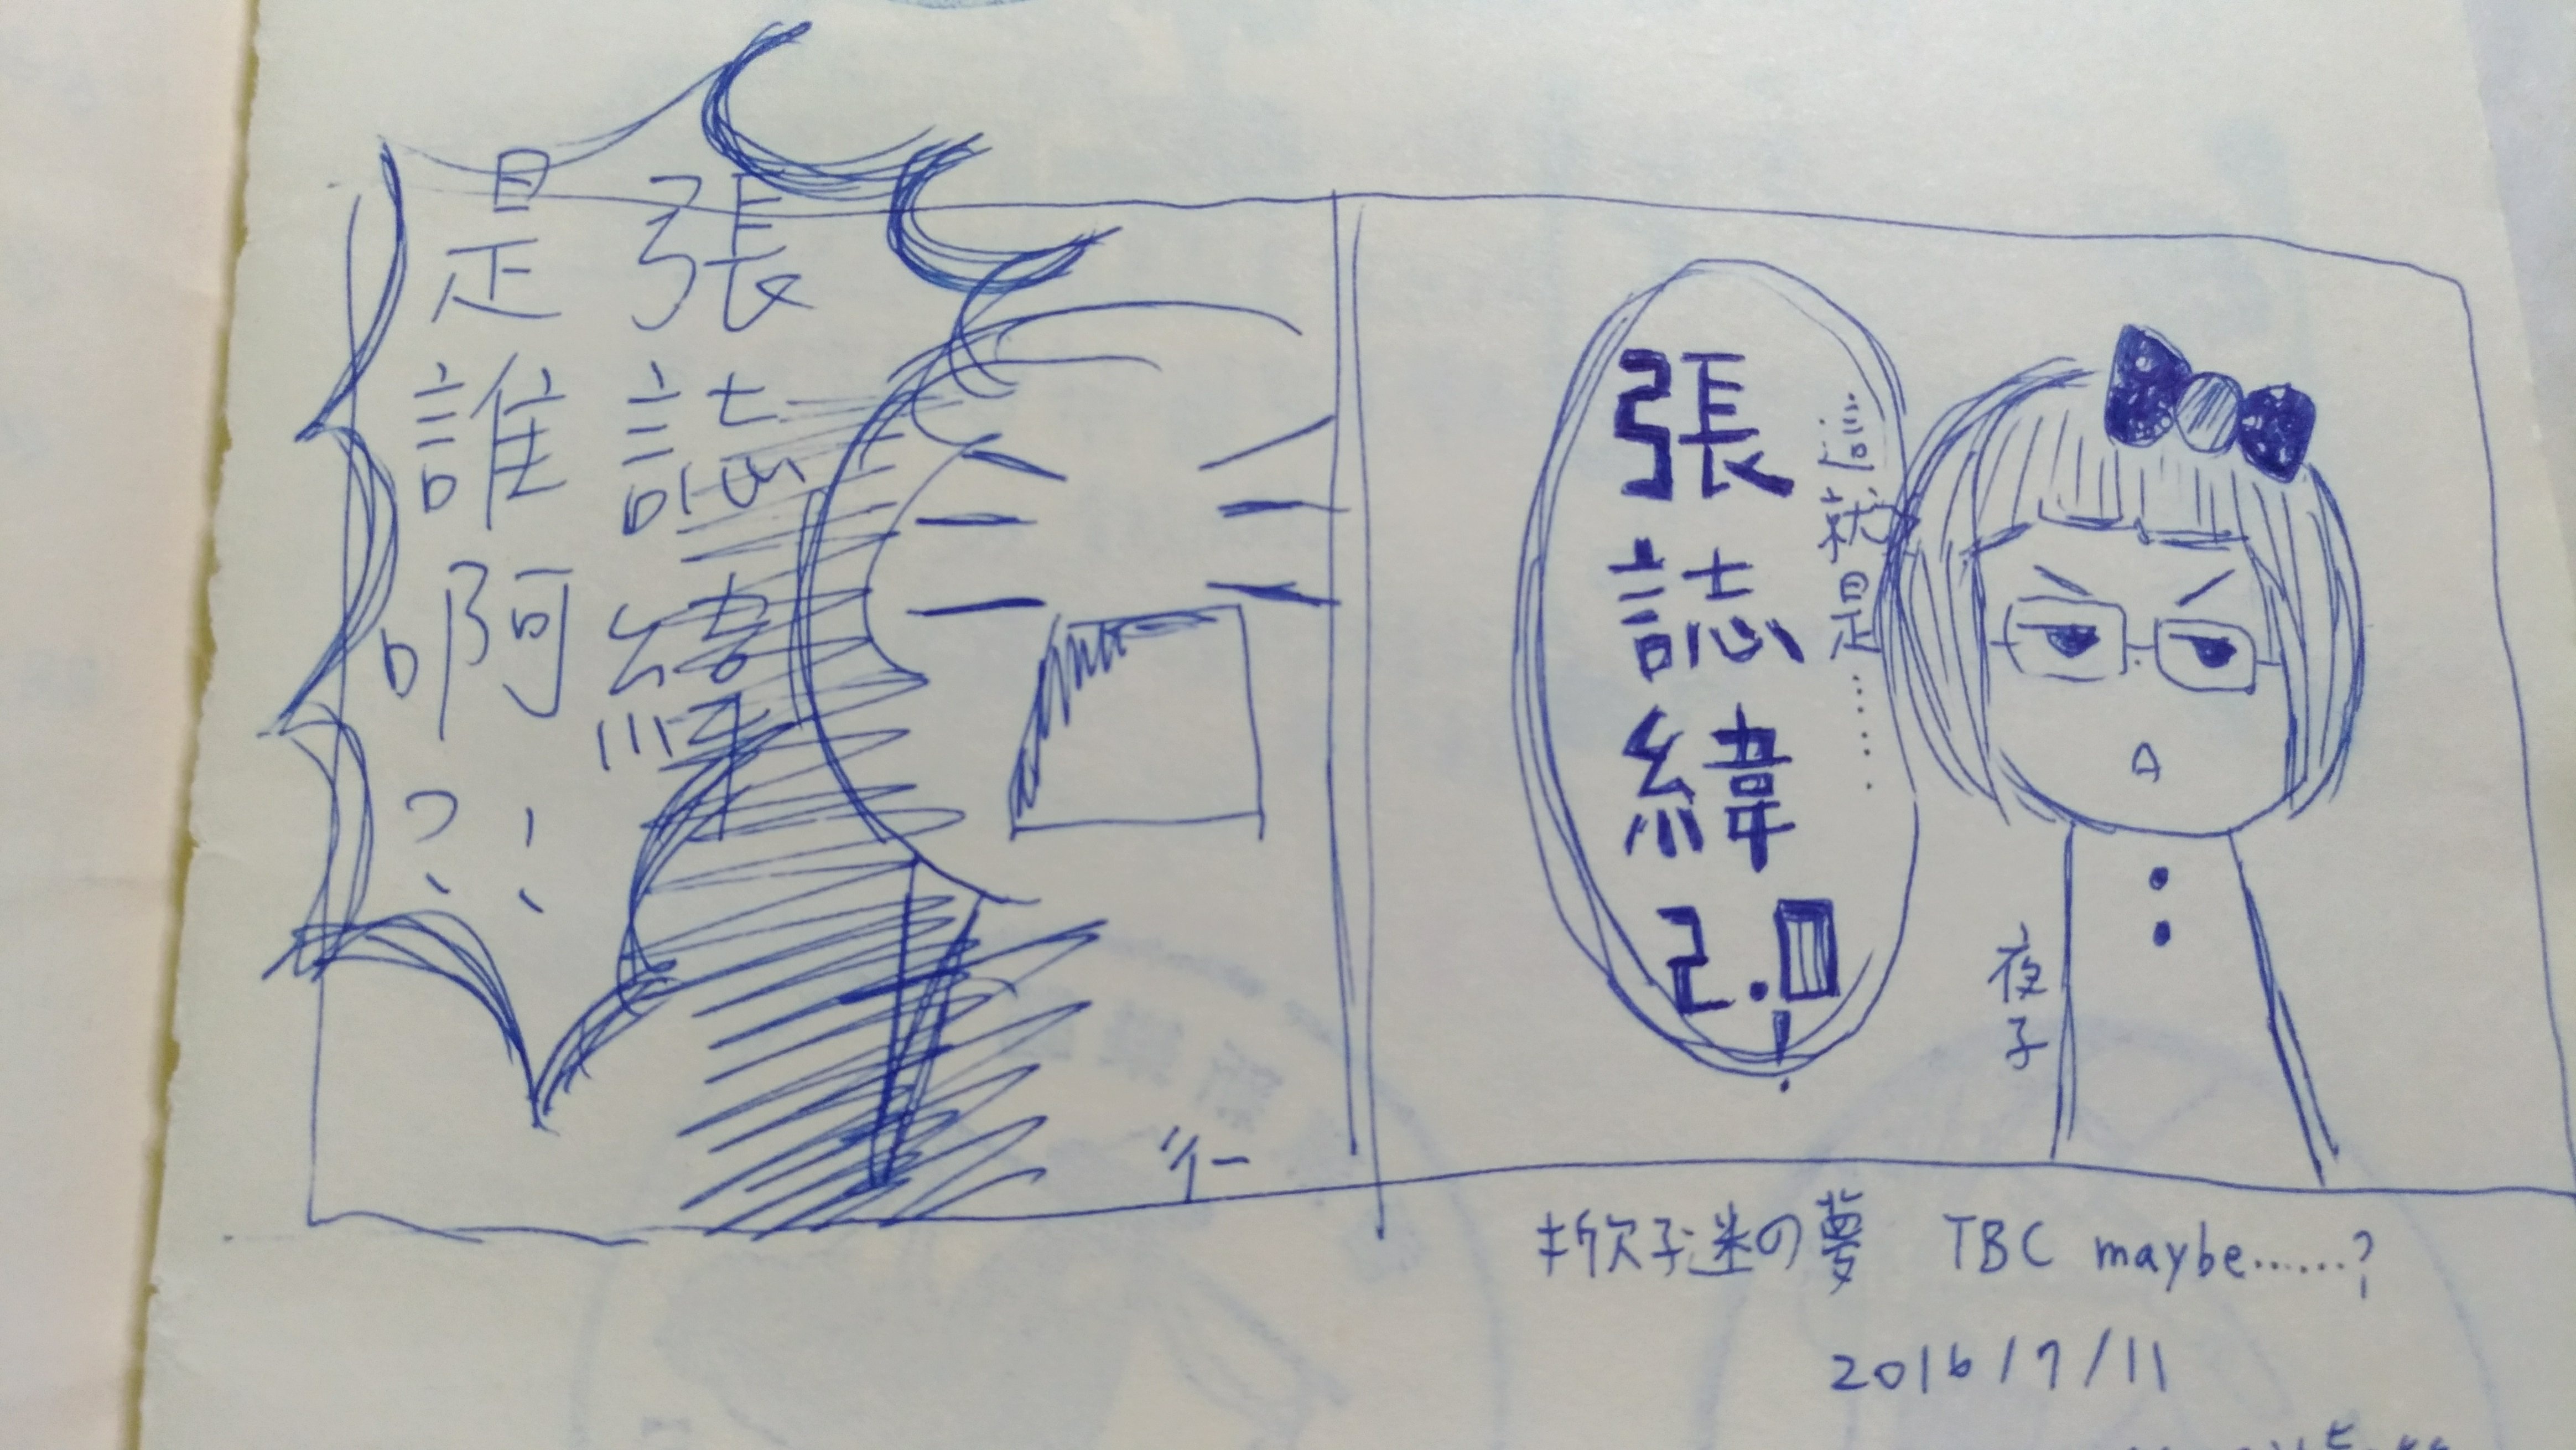 就是……
張誌緯2.0!
夜子
張誌緯
是誰啊?!
#欣子迷の夢 TBC maybe……?
2016/7/11